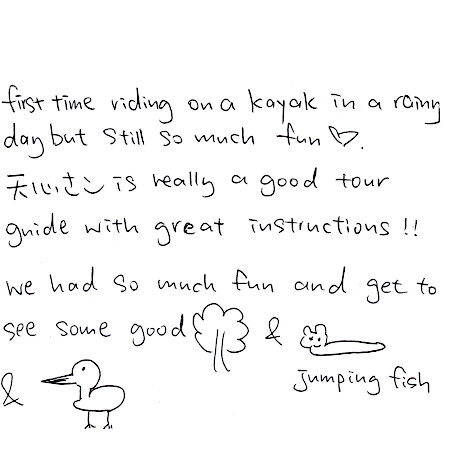 first time riding on a kayak in a rainy
day but still so much fun ♡.
天心さん is really a good tour
guide with great instructions !!
we had so much fun and get to
see some good &
jumping fish
&